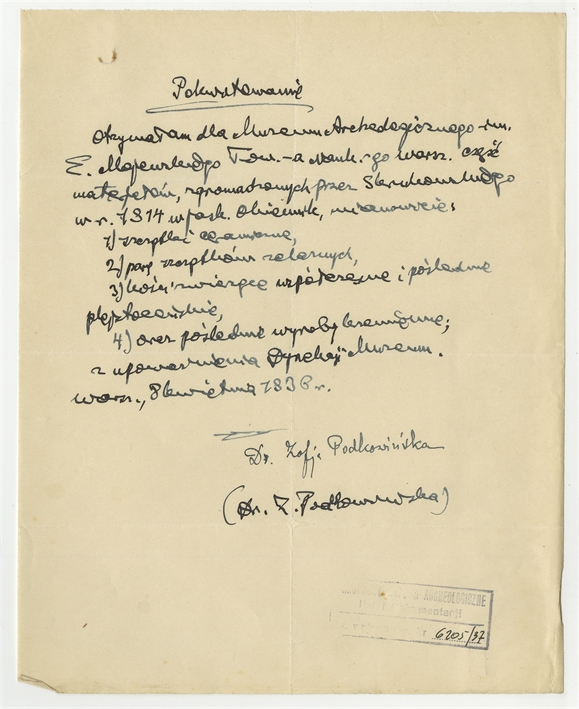 Pokwitowanie
Otrzymałam dla Muzeum Archeologicznego im.
E. Majewskiego Tow.-a Nauk.-go Warsz. część
materjałów, zgromadzonych przez Krukowskiego
w r. 1914 w jask. Ciemnik, mianowicie:
1) rozgłki ceramiczne,
2) parę
3) kości zwierzęce współczesne i pośledne
plejstoceńskie,
4) oraz pośledne wyroby krzemienne;
z upoważnienia Dyrekcji Muzeum.
Warsz., 8 kwietnia 1936 r.
Dr. Zofja Podkowińska
(Dr. Z. Podkowińska)
ARCHEOLOGICZNE
Dział Dokumentacji
6205/37